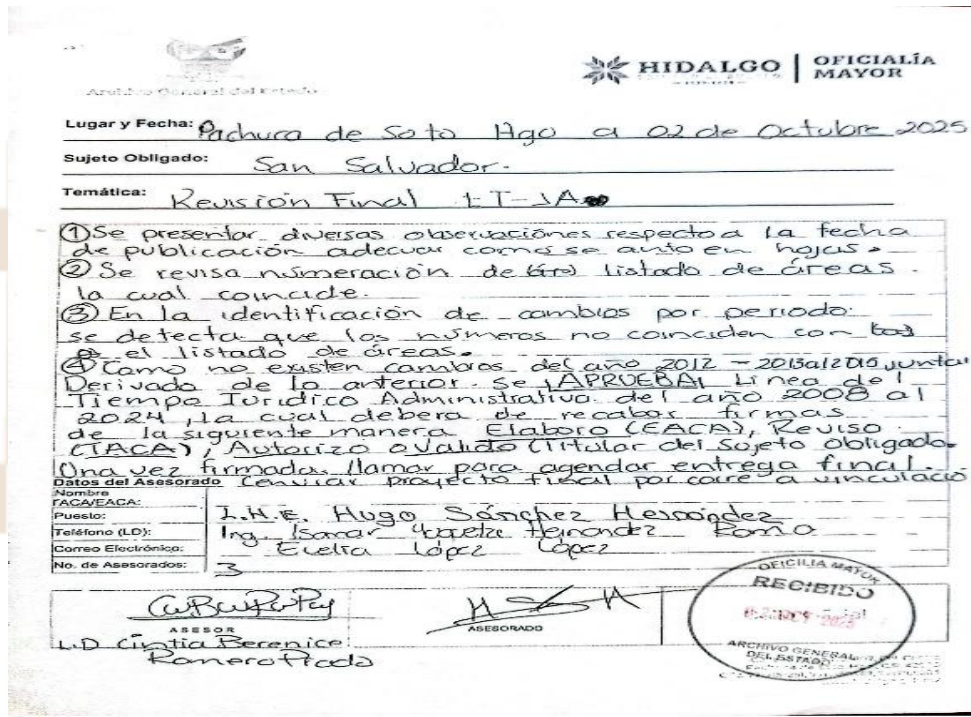 Archivo General del Estado
HIDALGO | OFICIALÍA MAYOR
Lugar y Fecha: Pachuca de Soto Hgo a 02 de Octubre 2025
Sujeto Obligado: San Salvador.
Temática: Revisión Final LT-JA
① Se presentar diversas observaciones respecto a la fecha
de publicación adecuar como se anto en hojas.
② Se revisa númeración de listado de áreas.
la cual coincide.
③ En la identificación de cambios por periodo:
se detecta que los números no coinciden con
el listado de áreas.
④ Como no existen cambios del año 2012 - 2013 al 2016 juntar
Derivado de lo anterior. se ¡APRUEBA! Línea del
Tiempo Jurídico Administrativo del año 2008 al
2024, la cual debera de recabar firmas
de la siguiente manera Elaboro (EACA), Reviso
(TACA), Autorizo o Valido (Titular del Sujeto Obligado.
Una vez firmada, llamar para agendar entrega final.
Datos del Asesorado (enviar proyecto final por corre a vinculació
Nombre
TACA/EACA:
Puesto: I.H.E. Hugo Sánchez Hernández
Teléfono (LD): Ing. Isamar Hernandez
Correo Electrónico: Evelia López López
No. de Asesorados: 3
ASESOR
ASESORADO
L.D Cintia Berenice
Romero Prado
OFICILIA MAYOR
RECIBIDO
02 OCT 2025
ARCHIVO GENERAL
DEL ESTADO